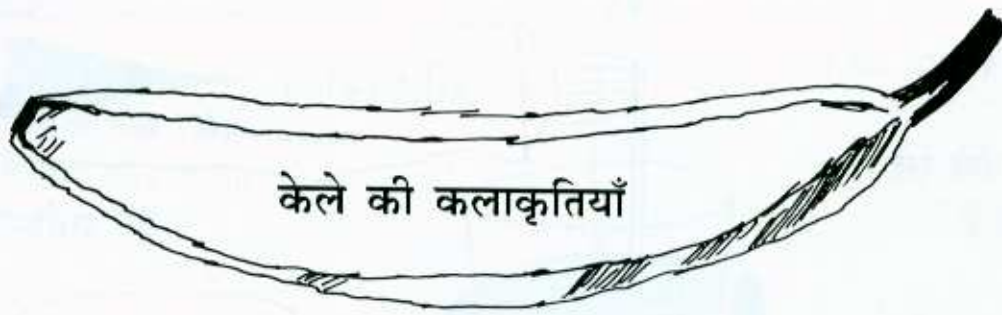 केले की कलाकृतियाँ